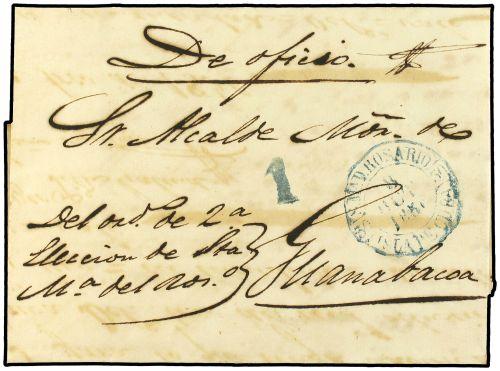 De oficio.
Sr. Alcalde Mõr. de
1
Del ord. de 2ª
Eleccion de Sta
Mª del Ros.º
Guanabacoa